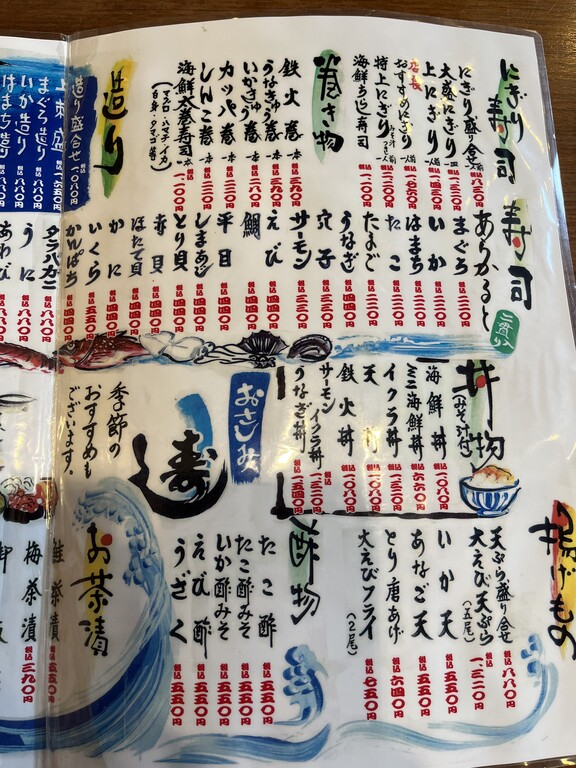 にぎり寿司
にぎり盛り合せ 一人前 税込八八〇円
大盛にぎり 税込一三二〇円
上にぎり 一人前 税込一四三〇円
店長
おすすめにぎり 税込一七六〇円
特上にぎり
海鮮ちらし寿司
巻き物
鉄火巻 一本
うなきゅう巻 一本
いかきゅう巻 一本
カッパ巻 一本 税込二二〇円
しんこ巻 一本 税込二二〇円
海鮮太巻寿司 一本 税込一一〇〇円
(マグロ・ハマチ・イカ
白身・タマゴ 等)
造り
造り盛合せ 税込一〇八〇円
上刺盛 税込一六五〇円
まぐろ造り 税込八八〇円
いか造り 税込八八〇円
はまち造り 税込八八〇円
寿司
あらかると
二貫入り
まぐろ 税込二二〇円
いか 税込二二〇円
はまち 税込二二〇円
たこ 税込二二〇円
たまご 税込二二〇円
うなぎ
穴子
サーモン 税込三三〇円
えび
鯛 税込四四〇円
平目 税込四四〇円
しまあじ 税込四四〇円
とり貝 税込四四〇円
赤貝 税込四四〇円
ほたて貝 税込四四〇円
かに 税込四四〇円
いくら 税込五五〇円
かんぱち 税込四四〇円
タラバガニ 税込八八〇円
うに 税込八八〇円
あわび 税込八八〇円
丼物
(赤だし付)
海鮮丼 税込一〇八〇円
ミニ海鮮丼 税込六六〇円
イクラ丼 税込一三二〇円
天丼 税込一〇八〇円
鉄火丼 税込一〇八〇円
サーモン
イクラ丼 税込一三二〇円
うなぎ丼 税込一五四〇円
おさしみ
寿し
季節の
おすすめも
ございます。
揚げもの
天ぷら盛り合せ 税込八八〇円
大えび天ぷら(五尾) 税込一、三二〇円
いか天 税込五五〇円
あなご天 税込五五〇円
とり唐あげ 税込六四〇円
大えびフライ(2尾) 税込七五〇円
酢物
たこ酢 税込五五〇円
たこ酢みそ 税込五五〇円
いか酢みそ 税込五五〇円
えび酢 税込五五〇円
うざく 税込五五〇円
お茶漬
鮭茶漬 税込五五〇円
梅茶漬 税込三九〇円